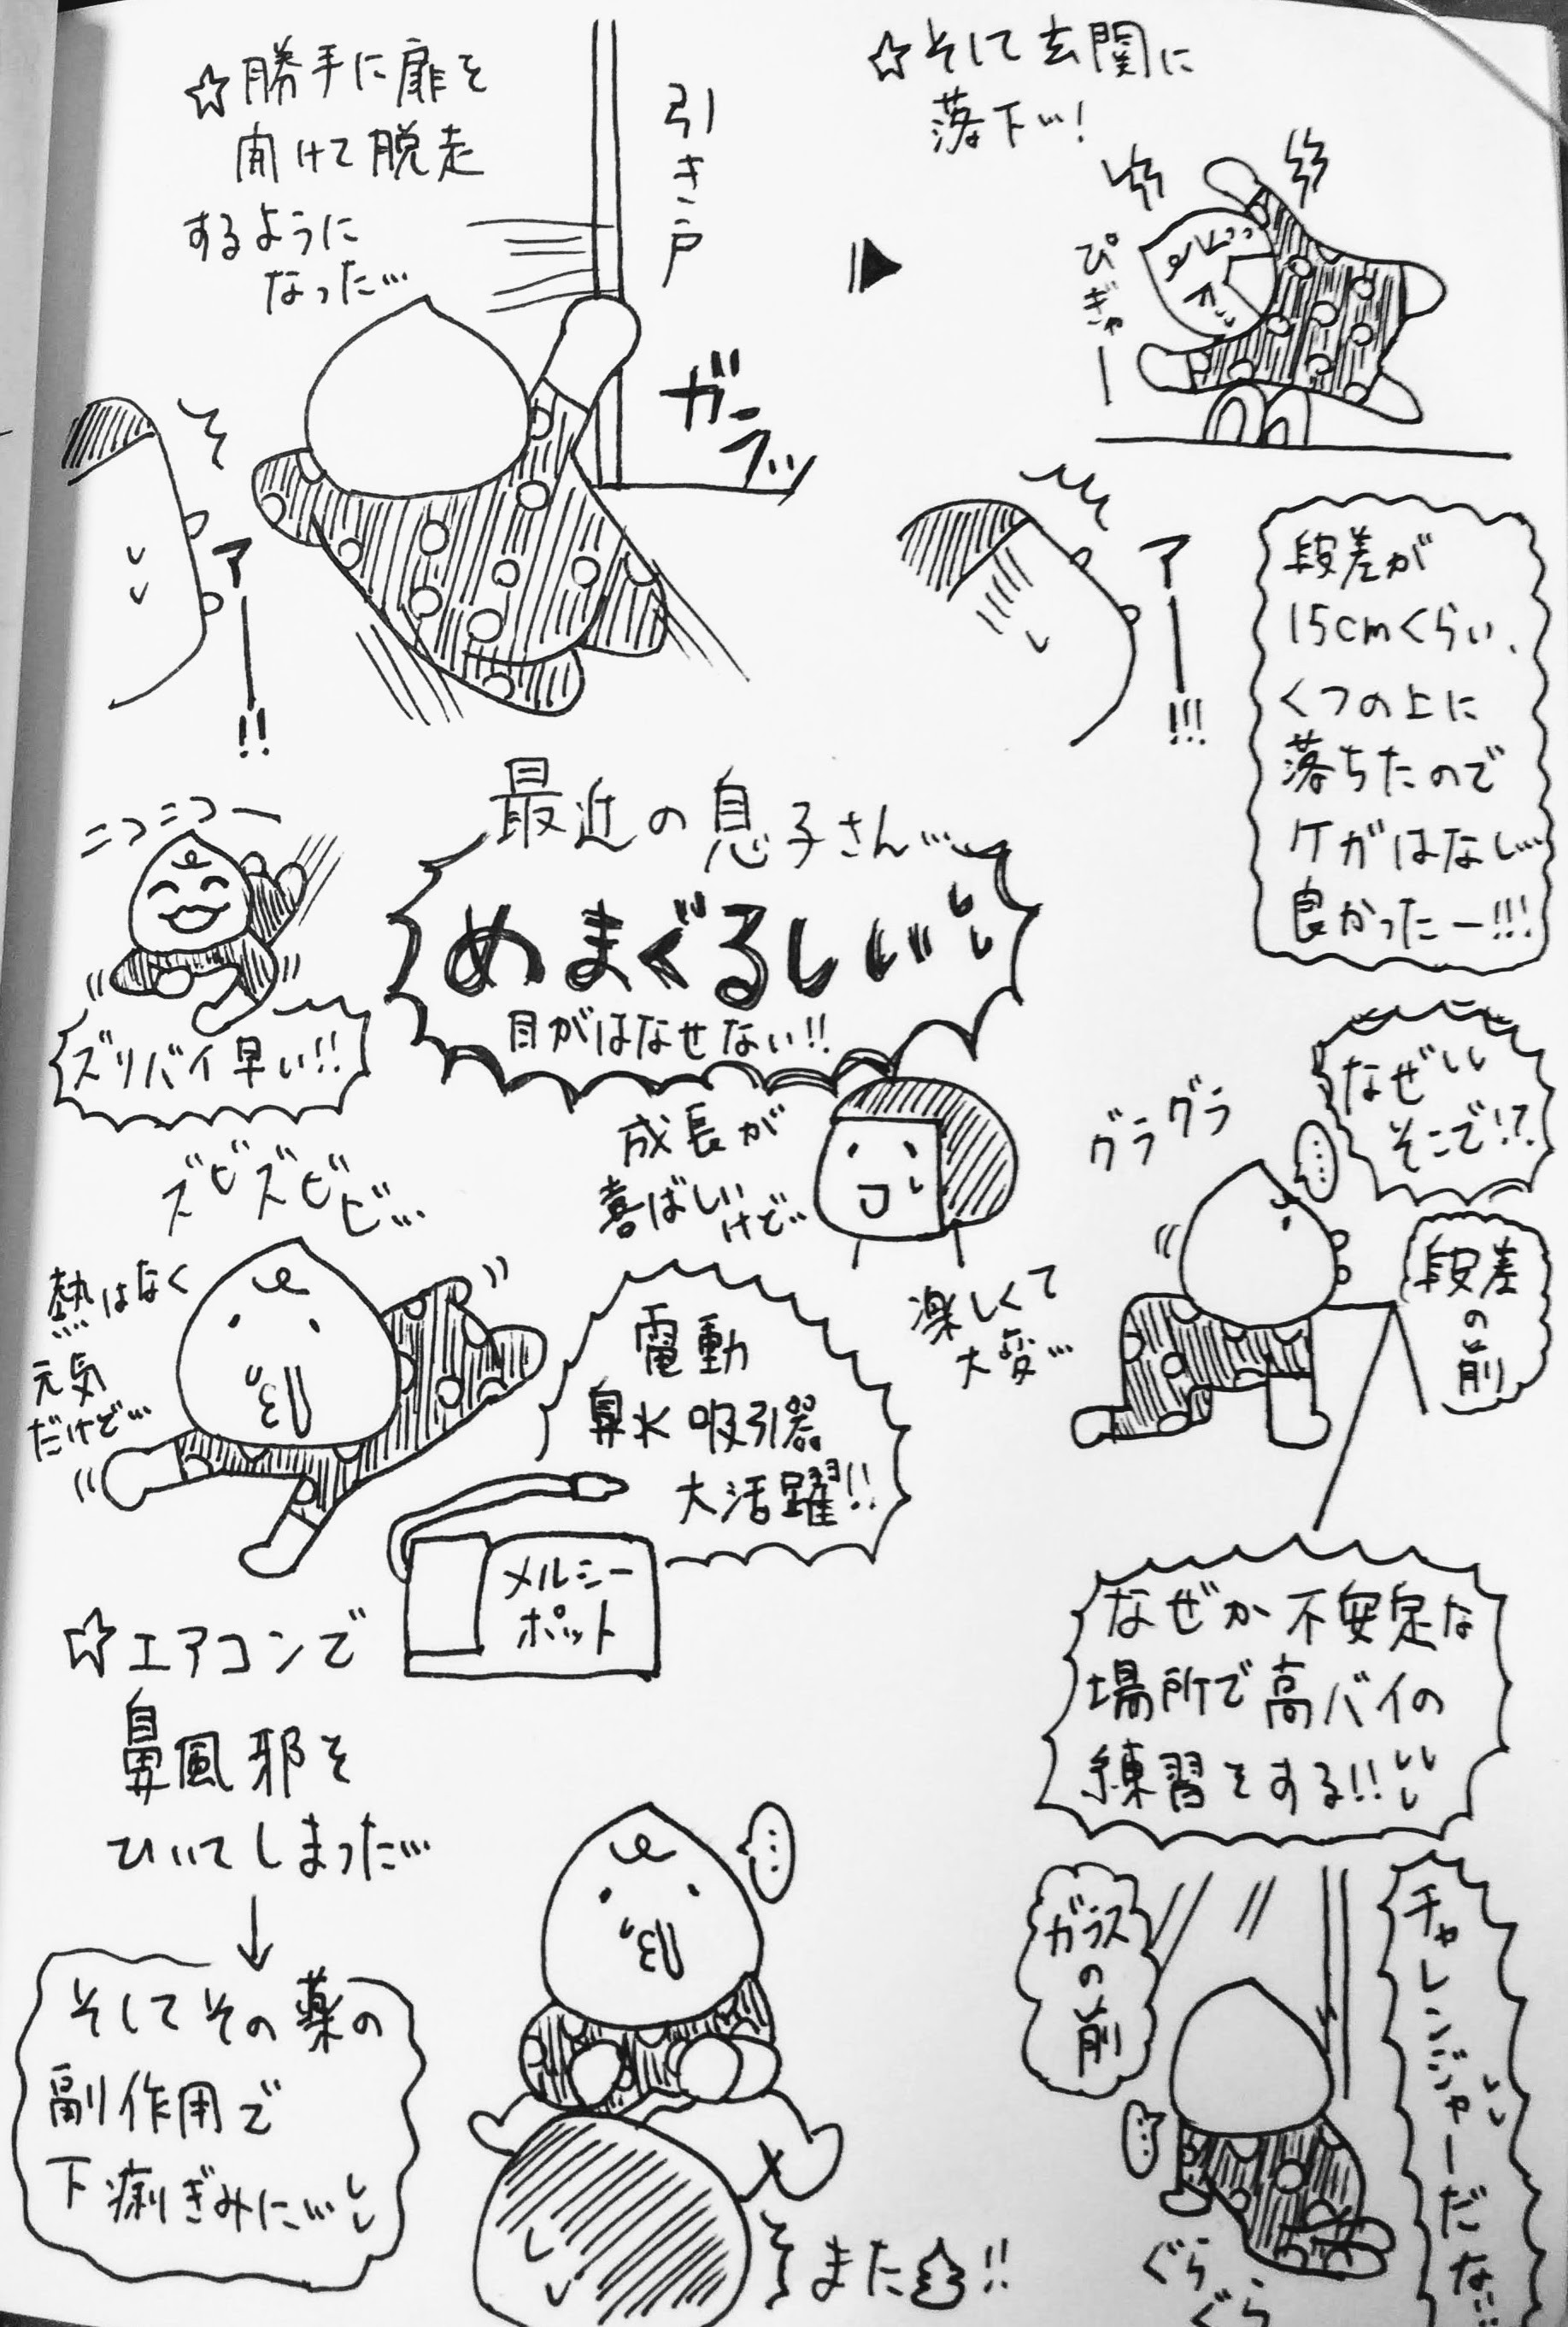 ☆勝手に扉を
開けて脱走
するように
なった…
引き戸
ガラッ
アー!!
☆そして玄関に
落下…!
ぴぎゃー
アー!!!
段差が
15cmくらい、
くつの上に
落ちたので
ケガはなし…
良かったー!!!
最近の息子さん…
めまぐるしい…
目がはなせない!!
ニコニコー
ズリバイ早い!!
成長が
喜ばしいけど…
楽しくて
大変…
なぜ
そこで!?
グラグラ
段差
の
前
なぜか不安定な
場所で高バイの
練習をする!!
ガラス
の
前
チャレンジャーだな…
ぐら
ぐら
ズビズビビ…
熱はなく
元気
だけど…
電動
鼻水吸引器
大活躍!!
メルシー
ポット
☆エアコンで
鼻風邪を
ひいてしまった…
↓
そしてその薬の
副作用で
下痢ぎみに…
また💩!!